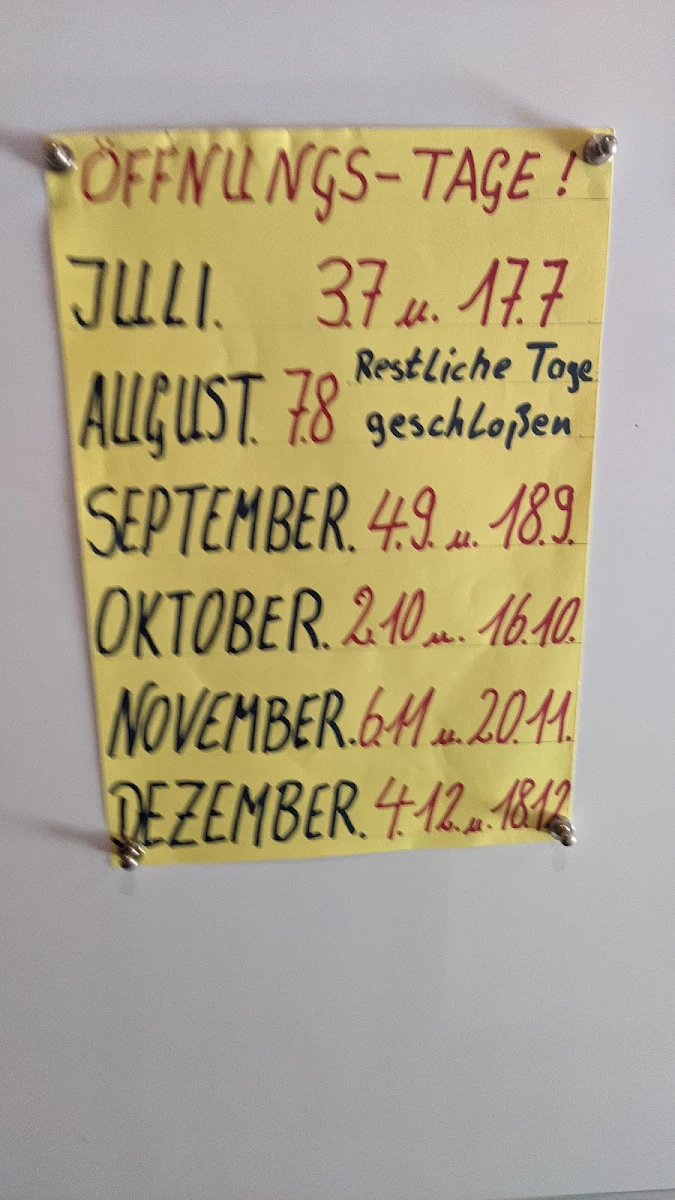 ÖFFNUNGS-TAGE!
JULI. 3.7 u. 17.7
AUGUST. 7.8 Restliche Tage
geschloßen
SEPTEMBER. 4.9. u. 18.9.
OKTOBER. 2.10 u. 16.10.
NOVEMBER. 6.11 u. 20.11.
DEZEMBER. 4.12. u. 18.12